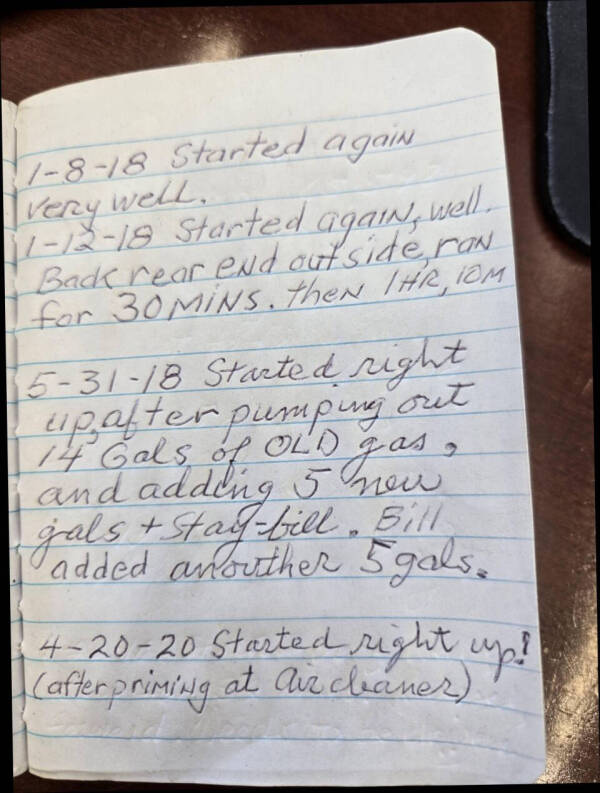 1-8-18 Started again
very well.
1-12-18 Started again, well.
Back rear end outside, ran
for 30 MINS. then 1 HR, 10M
5-31-18 Started right
up, after pumping out
14 Gals of OLD gas,
and adding 5 new
gals + Stay-bill. Bill
added anouther 5 gals.
4-20-20 Started right up!
(after priming at Air cleaner)